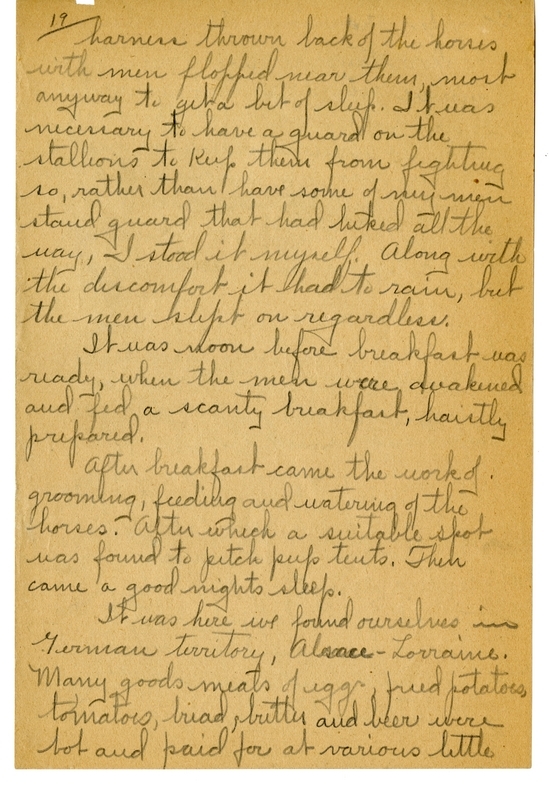 19
harness thrown back of the horses
with men flopped near them, most
anyway to get a bit of sleep. It was
necessary to have a guard on the
stallions to keep them from fighting
so, rather than have some of my men
stand guard that had hiked all the
way, I stood it myself. Along with
the discomfort it had to rain, but
the men slept on regardless.
It was noon before breakfast was
ready, when the men were awakened
and fed a scanty breakfast, haistly
prepared.
After breakfast came the work of
grooming, feeding and watering of the
horses. After which a suitable spot
was found to pitch pup tents. Then
came a good nights sleep.
It was here we found ourselves in
German territory, Alsace-Lorraine.
Many goods meals of eggs, fried potatoes,
tomatoes, bread, butter and beer were
bot and paid for at various little